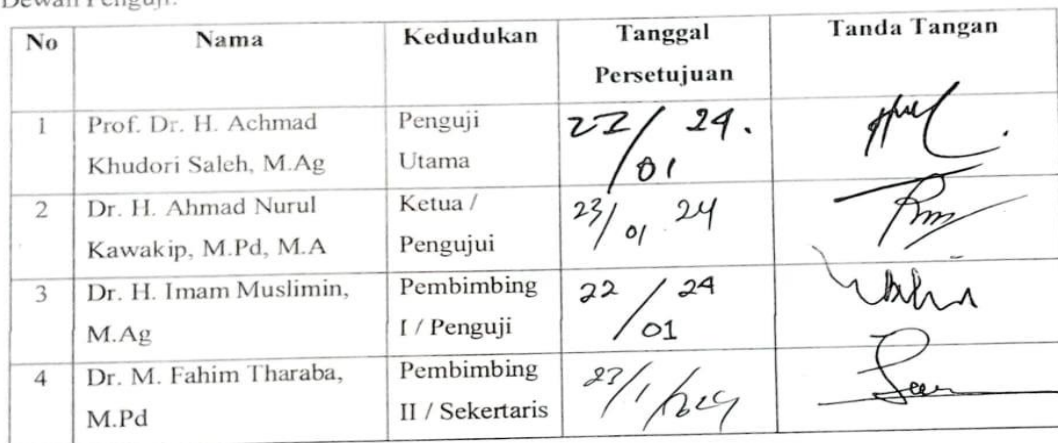 Dewan Penguji:
No Nama Kedudukan Tanggal Persetujuan Tanda Tangan
1 Prof. Dr. H. Achmad Khudori Saleh, M.Ag Penguji Utama 22/01 24.
2 Dr. H. Ahmad Nurul Kawakip, M.Pd, M.A Ketua / Pengujui 23/01 24
3 Dr. H. Imam Muslimin, M.Ag Pembimbing I / Penguji 22/01 24
4 Dr. M. Fahim Tharaba, M.Pd Pembimbing II / Sekertaris 23/1/